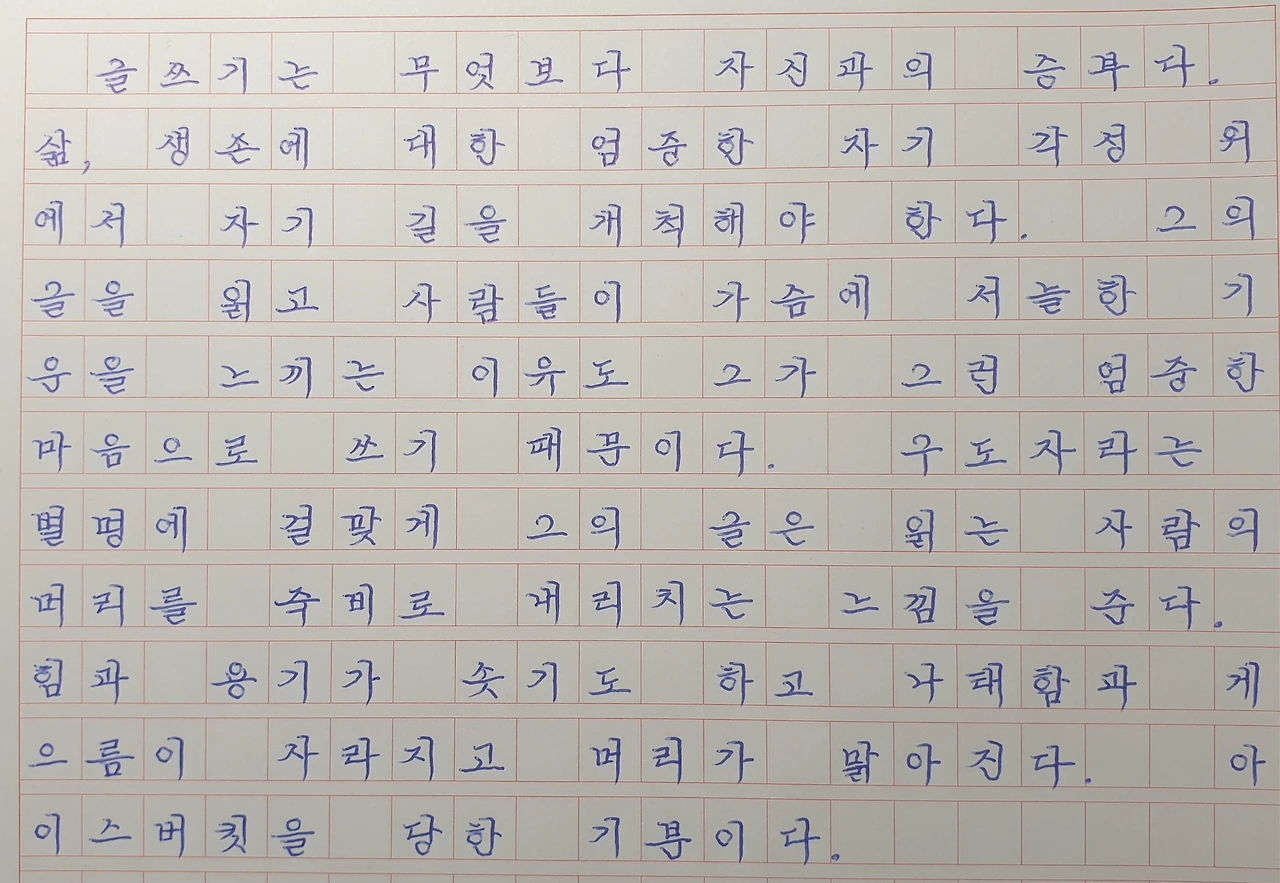 글쓰기는 무엇보다 자신과의 승부다.
삶, 생존에 대한 엄중한 자기 각성 위
에서 자기 길을 개척해야 한다. 그의
글을 읽고 사람들이 가슴에 서늘한 기
운을 느끼는 이유도 그가 그런 엄중한
마음으로 쓰기 때문이다. 구도자라는
별명에 걸맞게 그의 글은 읽는 사람의
머리를 죽비로 내리치는 느낌을 준다.
힘과 용기가 솟기도 하고 나태함과 게
으름이 사라지고 머리가 맑아진다. 아
이스버킷을 당한 기분이다.